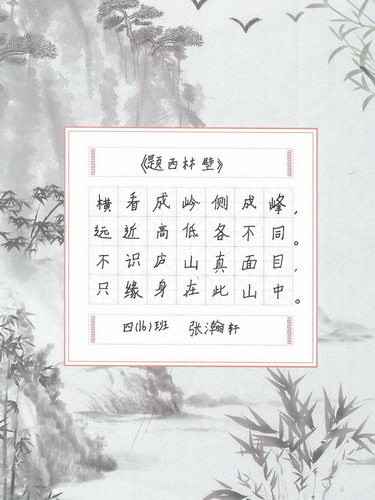 《题西林壁》
横看成岭侧成峰，
远近高低各不同。
不识庐山真面目，
只缘身在此山中。
四(16)班 张瀚轩